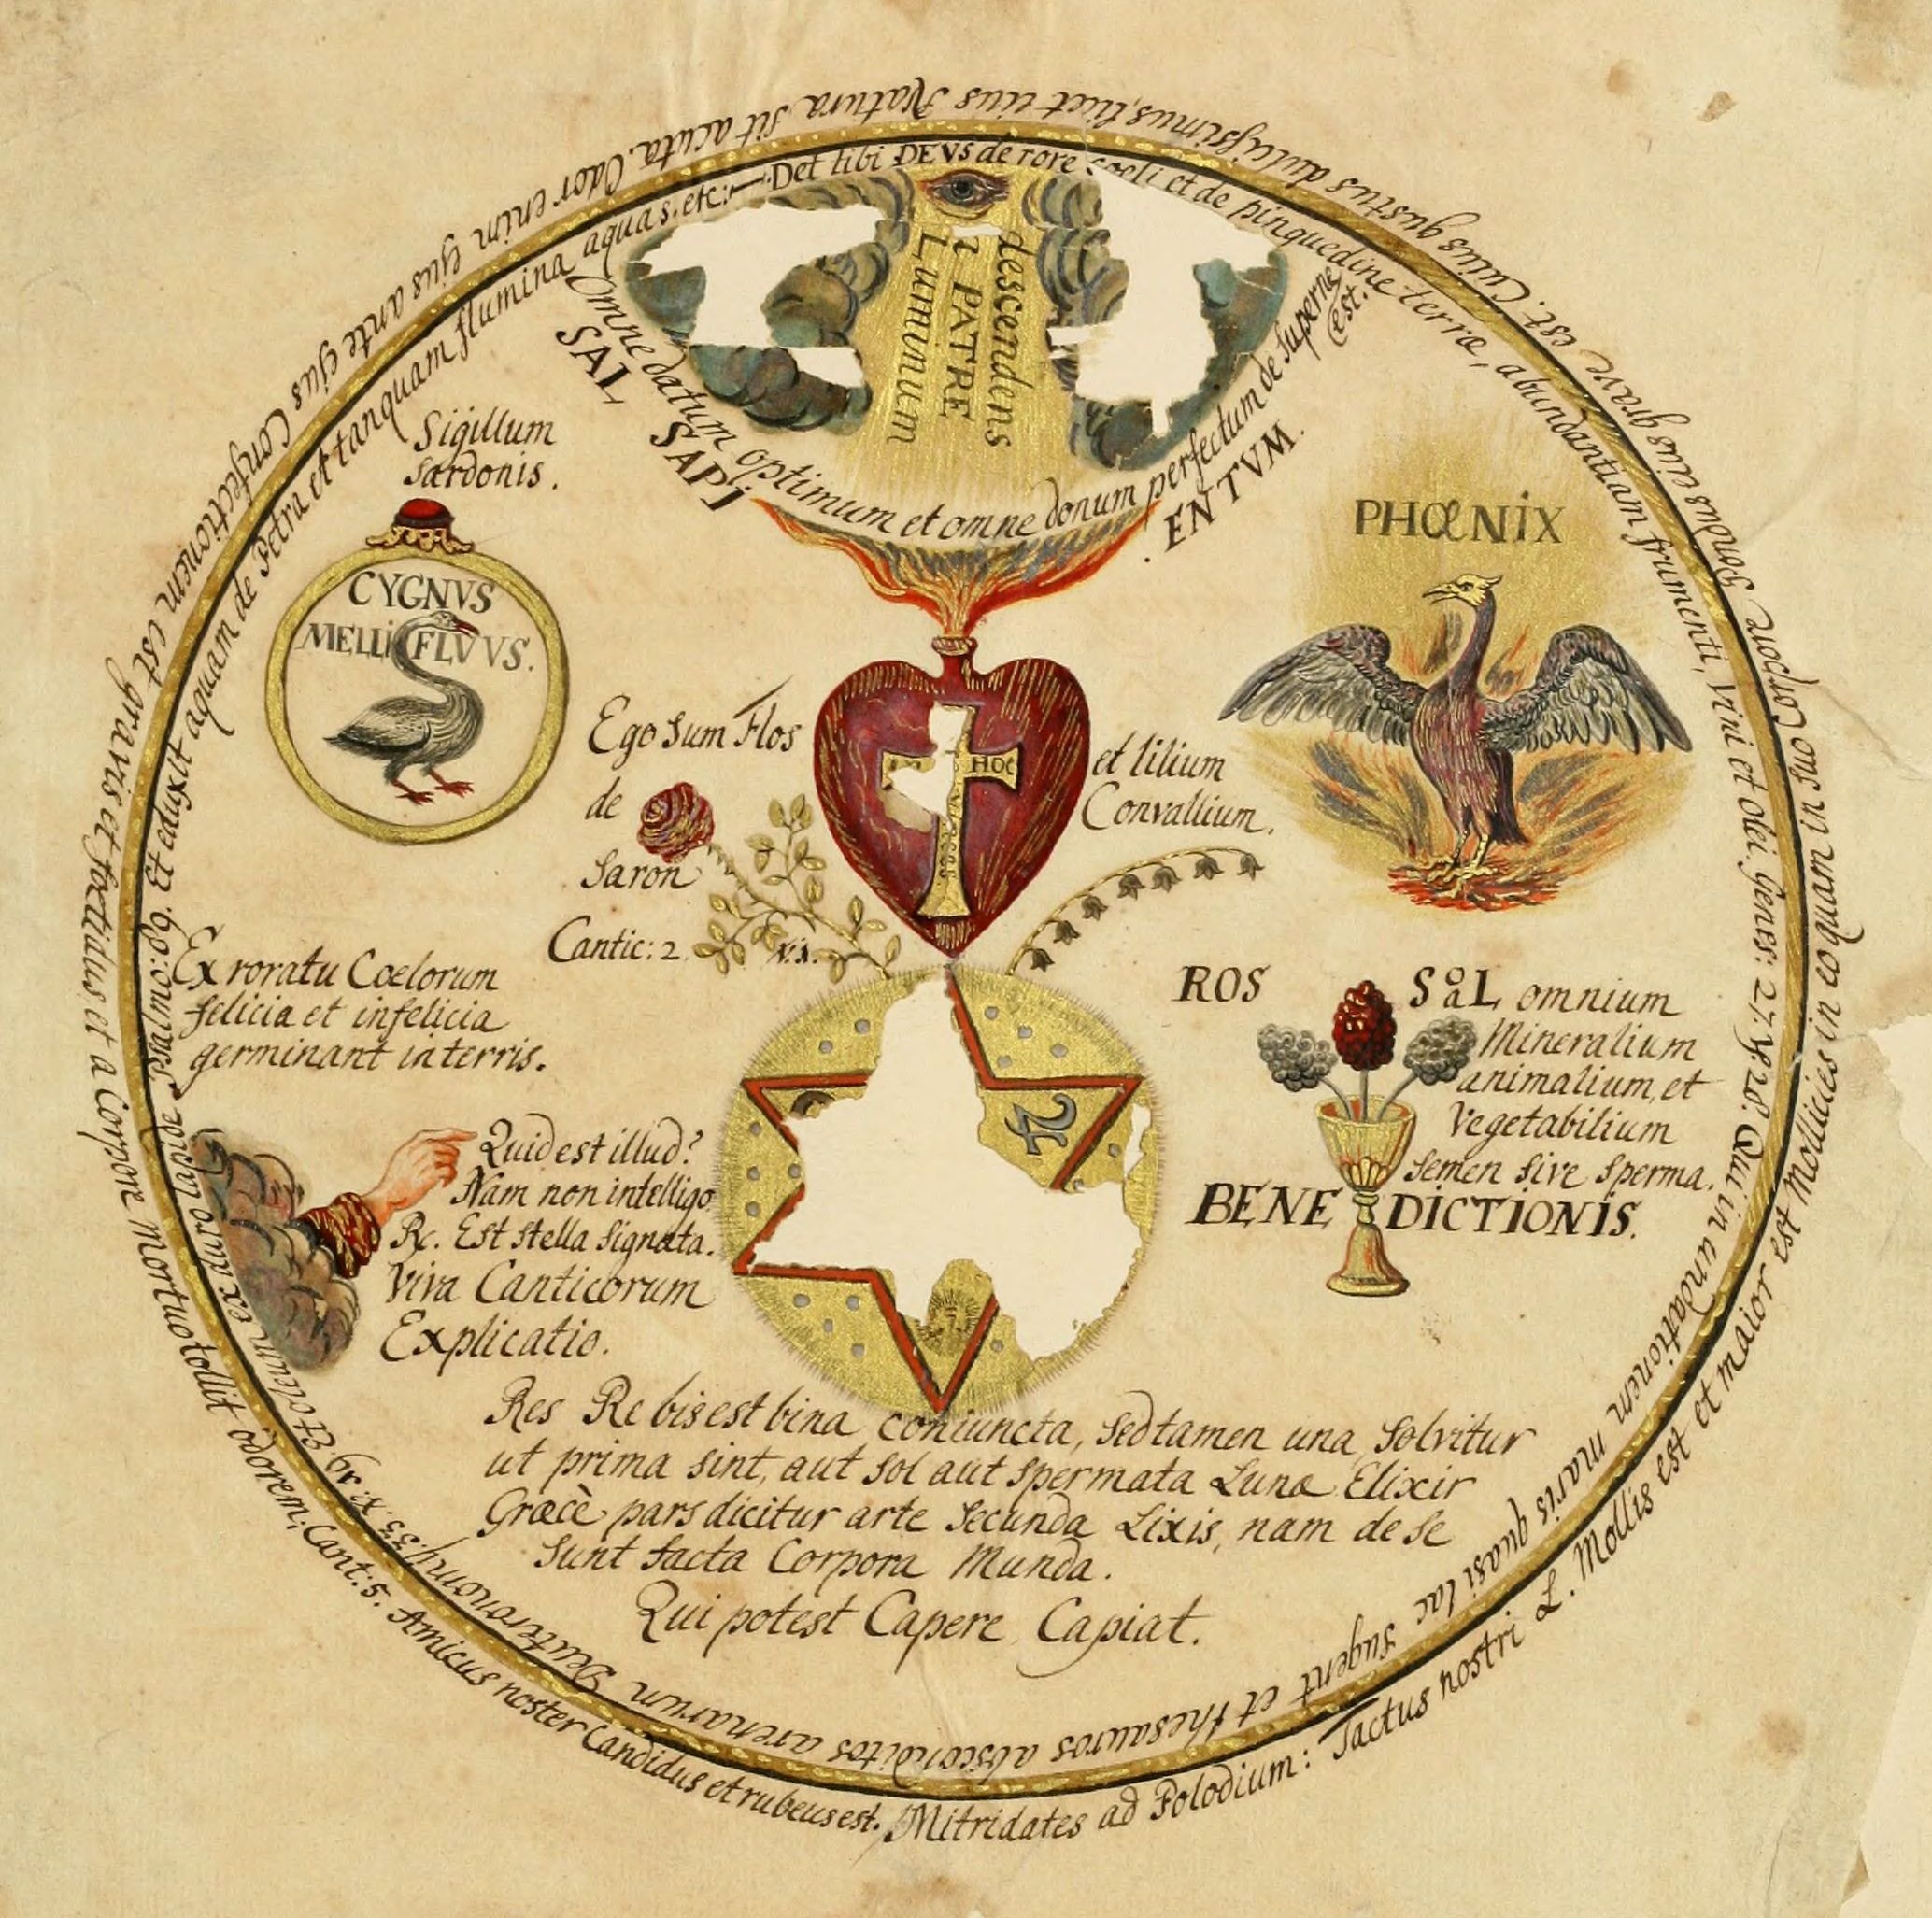 Mitridates ad Polodium: Tactus nostri L. Mollis est et maior est Mollicies in eo quam in suo Corpore. Pondus eius grave est. Cuius gustus dulcissimus, licet eius Natura sit acuta. Odor enim ejus ante ejus Confectionem est gravis et foetidus, et a Corpore mortuo tollit odorem. Cant: 5. Amicus noster Candidus et rubeus est.
Det tibi DEVS de rore coeli et de pinguedine terræ, abundantiam frumenti, Vini et olei. Genes: 27. V. 28. Qui in undationem maris quasi lac sugent et thesauros absconditos arenarum Deuteronomij. 33. V. 19. et oleum ex duro lapide Psalmo: 69. Et eduxit aquam de Petra et tanquam flumina aquas. etc:
descendens
à PATRE
Luminum
Omne datum optimum et omne donum perfectum de superne
est.
SAL SAPI ENTVM.
Sigillum
sardonis.
CYGNVS
MELLIFLVVS.
PHŒNIX
Ego sum Flos
de
Saron
Cantic: 2. V. 1.
et lilium
Convallium.
HOC
Ex roratu Coelorum
felicia et infelicia
germinant in terris.
ROS
SoaL omnium
Mineralium
animalium, et
Vegetabilium
semen sive sperma.
BENE DICTIONIS.
Quid est illud?
Nam non intelligo
Rx. Est stella signata.
Viva Canticorum
Explicatio.
♃
Res Rebis est bina coniuncta, sed tamen una, solvitur
ut prima sint, aut sol aut spermata Lunæ Elixir
Græcè pars dicitur arte secunda Lixis, nam de se
sunt facta Corpora Munda.
Qui potest Capere, Capiat.